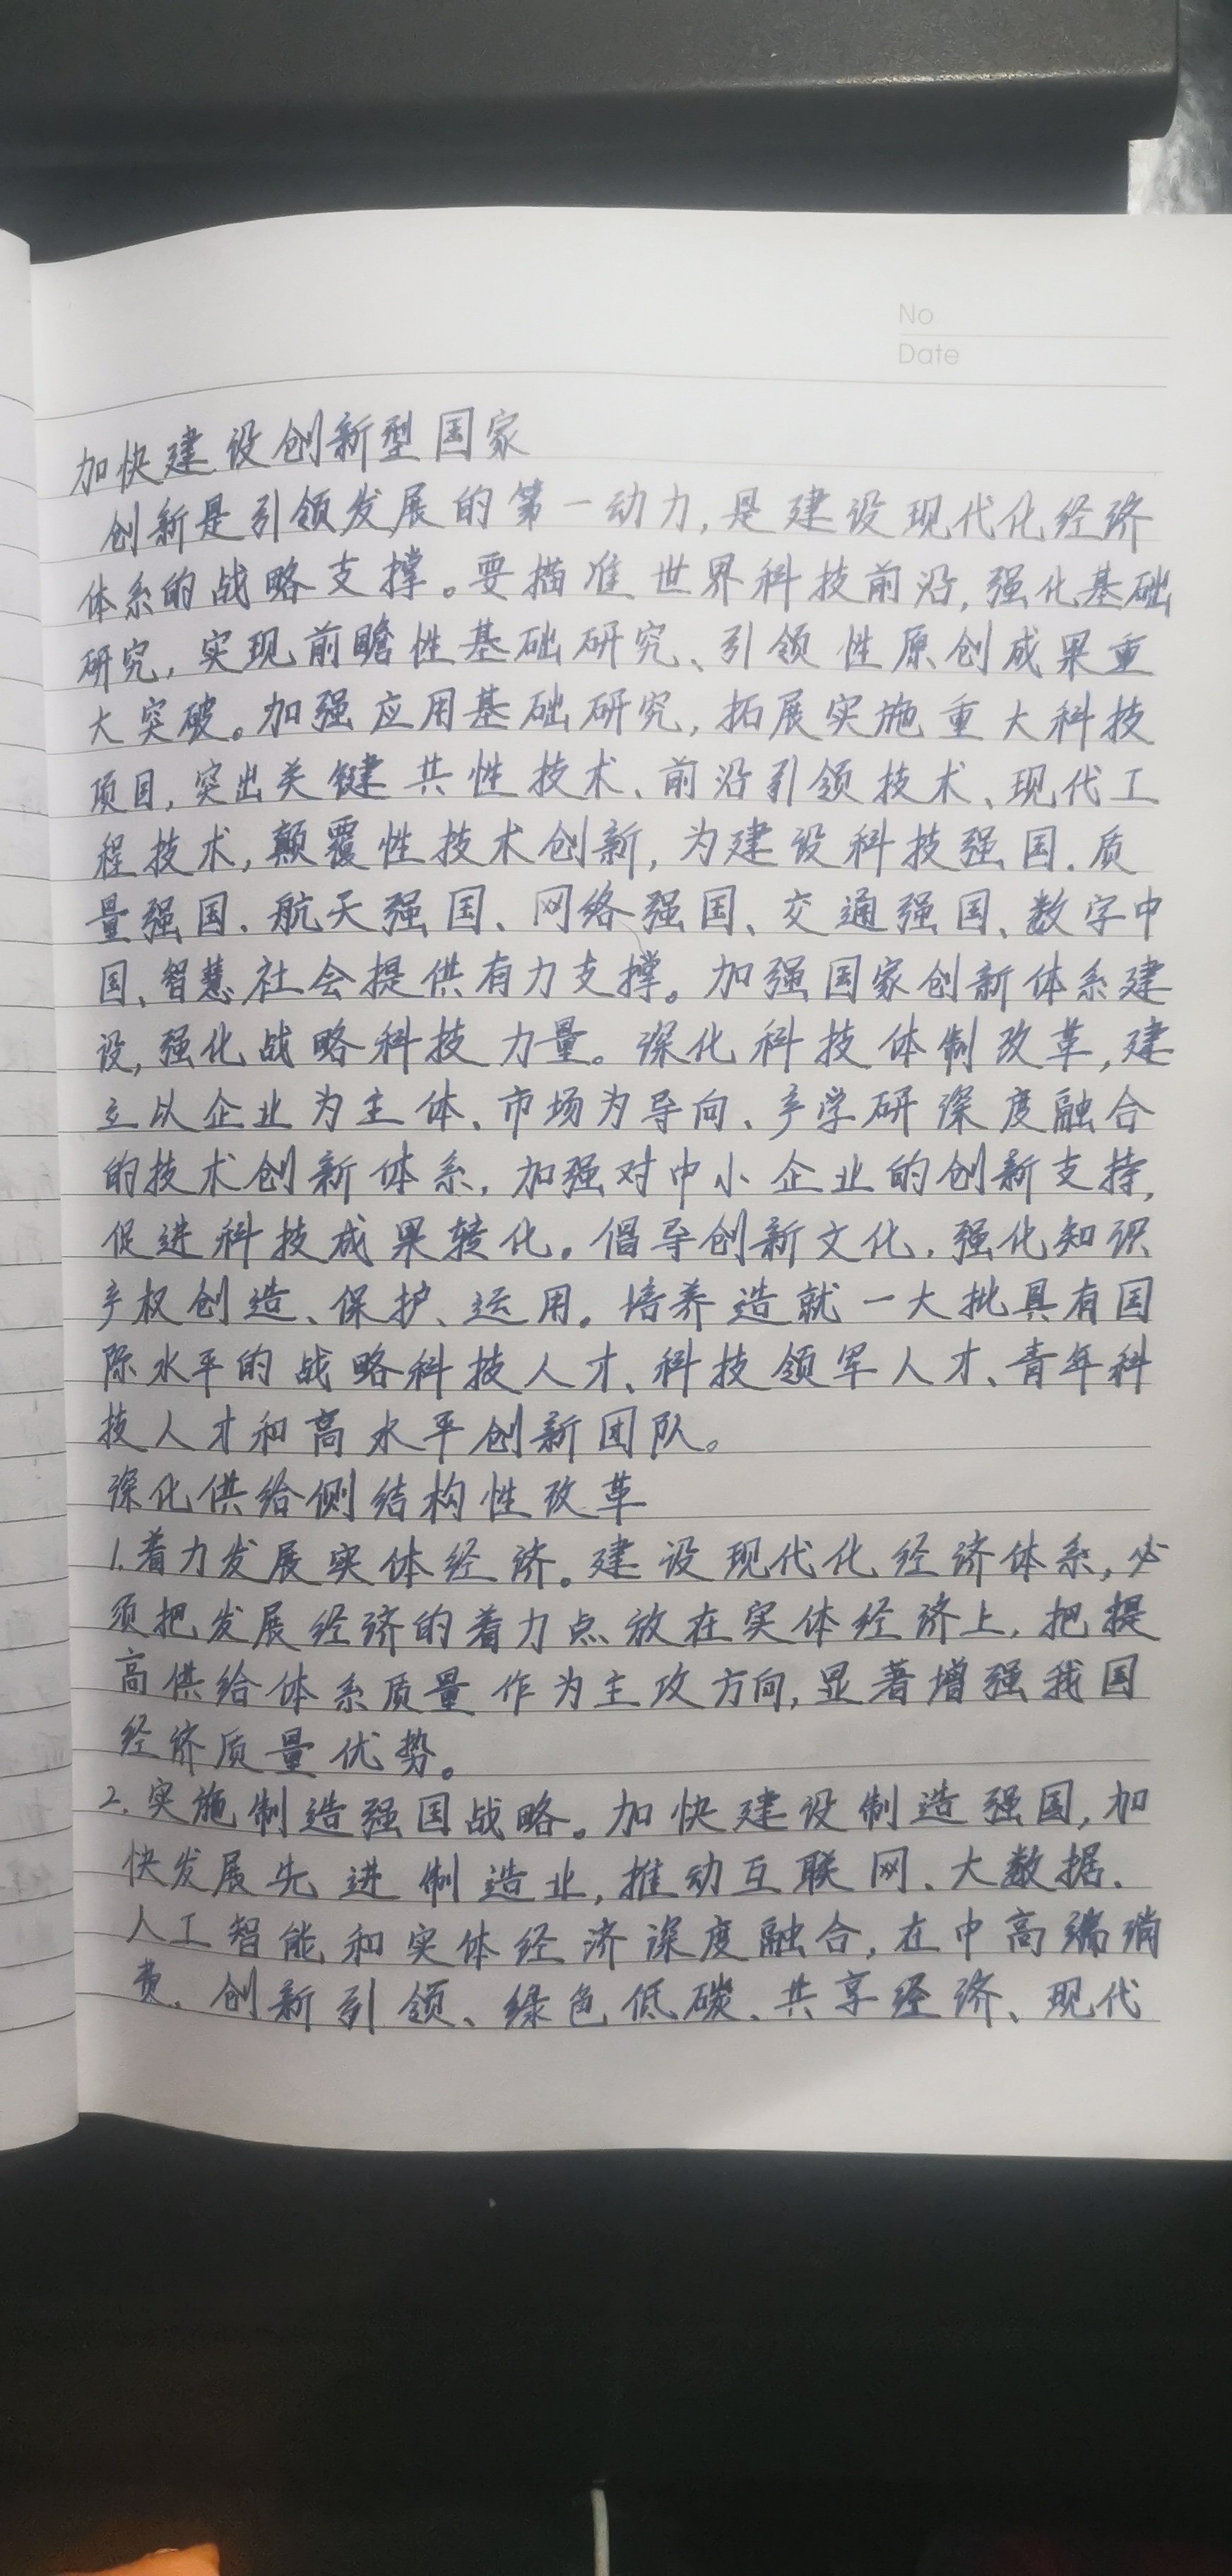 No
Date
加快建设创新型国家
创新是引领发展的第一动力,是建设现代化经济
体系的战略支撑。要描准世界科技前沿,强化基础
研究,实现前瞻性基础研究、引领性原创成果重
大突破。加强应用基础研究,拓展实施重大科技
项目,突出关键共性技术、前沿引领技术、现代工
程技术,颠覆性技术创新,为建设科技强国、质
量强国、航天强国、网络强国、交通强国、数字中
国、智慧社会提供有力支撑。加强国家创新体系建
设,强化战略科技力量。深化科技体制改革,建
立以企业为主体、市场为导向、产学研深度融合
的技术创新体系,加强对中小企业的创新支持,
促进科技成果转化。倡导创新文化,强化知识
产权创造、保护、运用。培养造就一大批具有国
际水平的战略科技人才、科技领军人才、青年科
技人才和高水平创新团队。
深化供给侧结构性改革
1.着力发展实体经济。建设现代化经济体系,必
须把发展经济的着力点放在实体经济上,把提
高供给体系质量作为主攻方向,显著增强我国
经济质量优势。
2.实施制造强国战略。加快建设制造强国,加
快发展先进制造业,推动互联网、大数据、
人工智能和实体经济深度融合,在中高端消
费、创新引领、绿色低碳、共享经济、现代